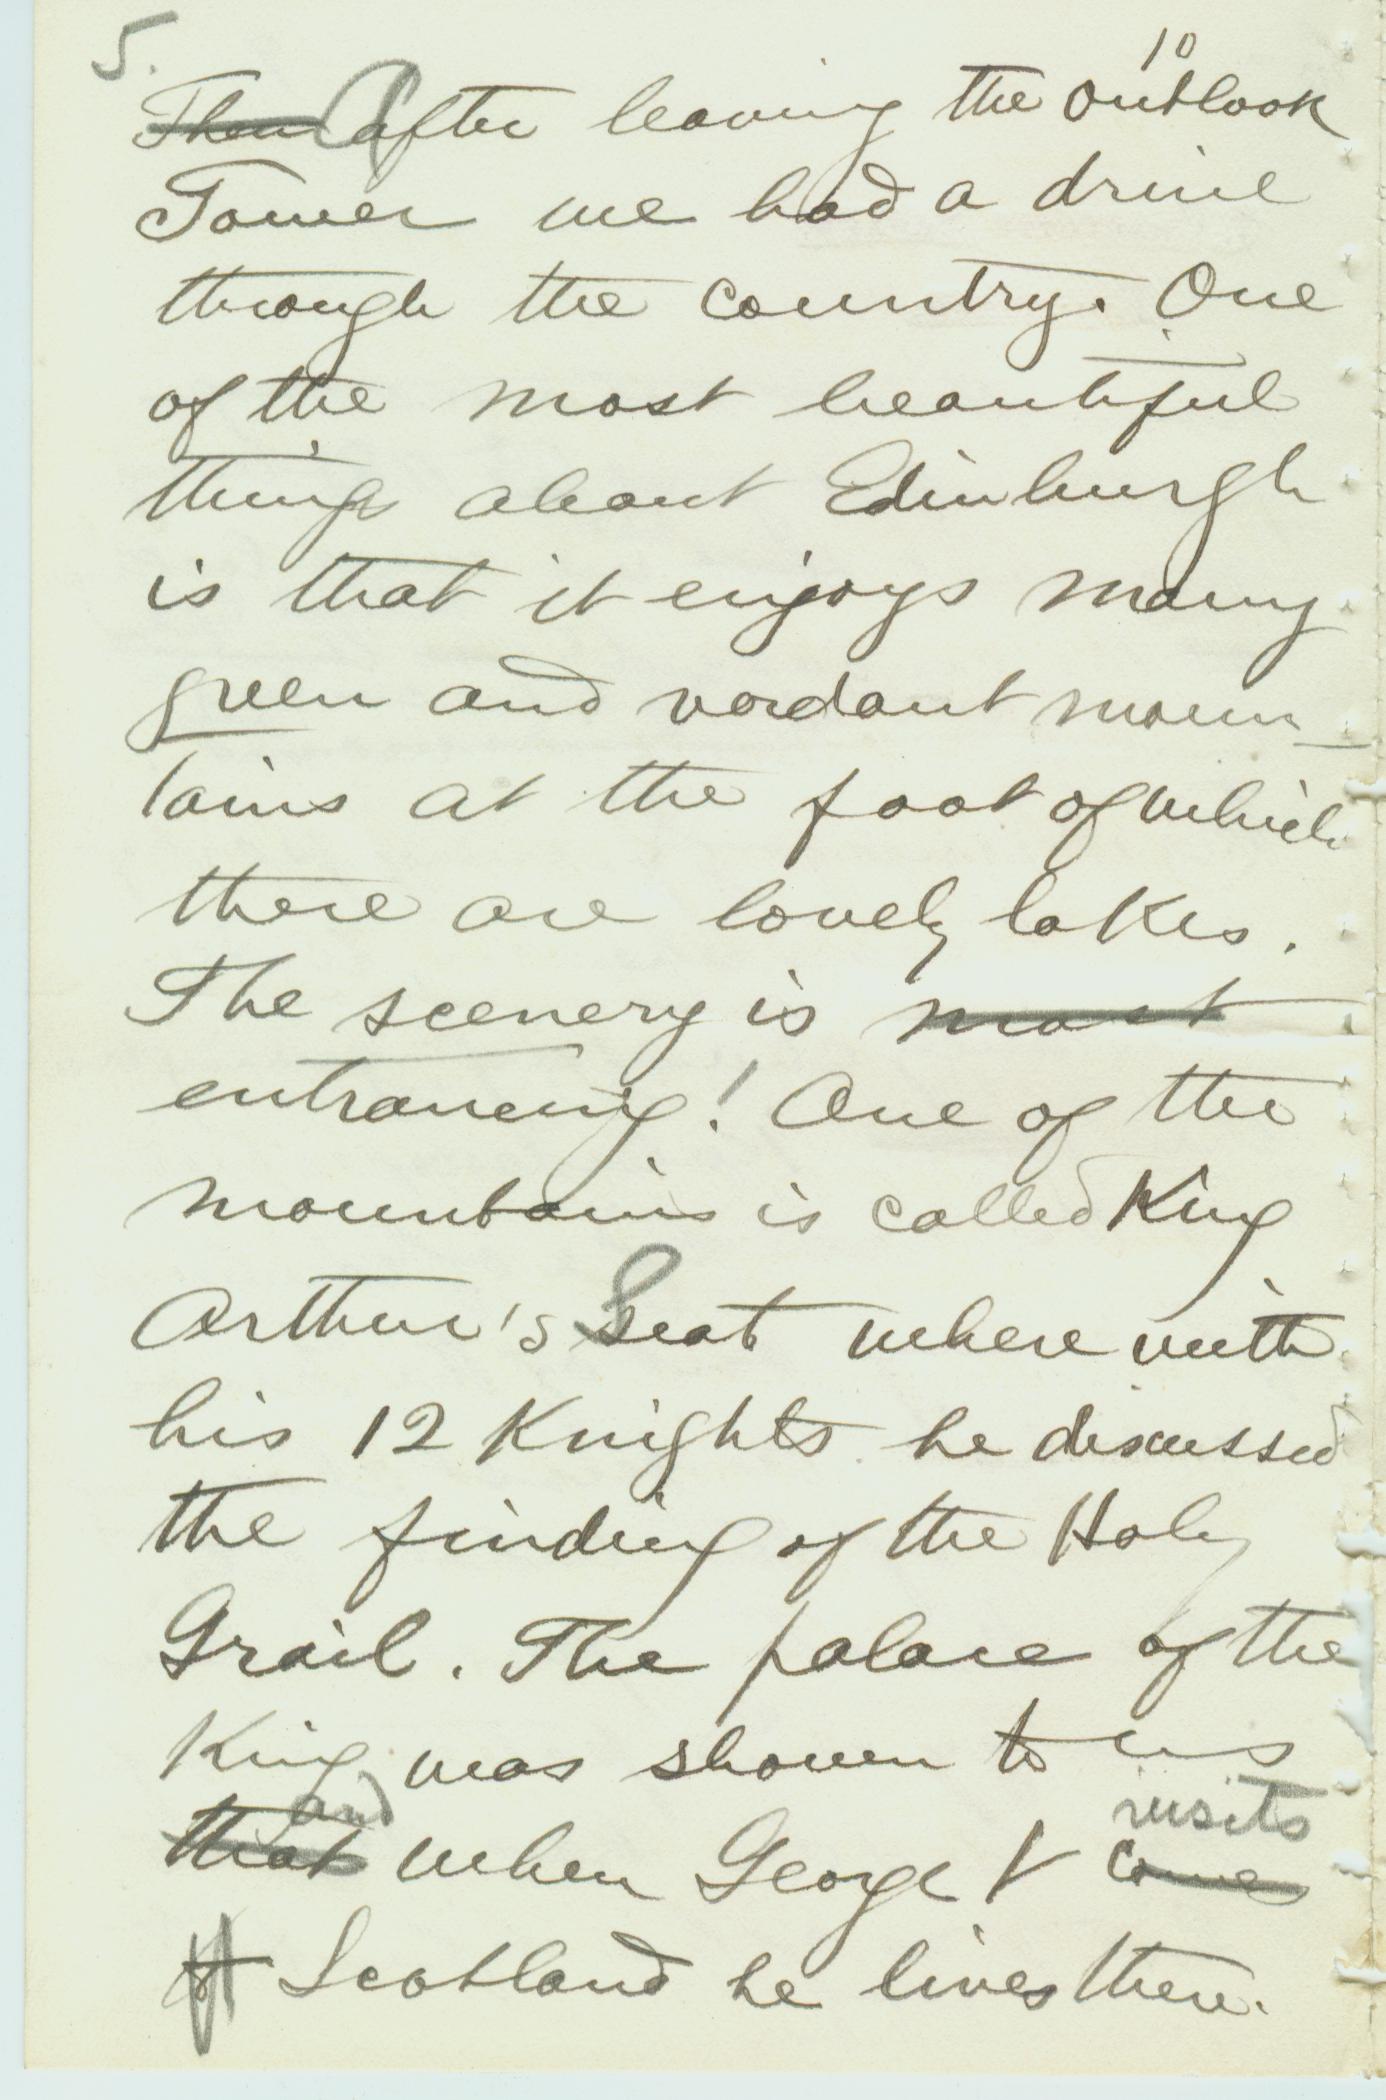 5.
10
Then After leaving the Outlook
Tower we had a drive
through the country. One
of the most beautiful
things about Edinburgh
is that it enjoys many
green and verdant moun-
tains at the foot of which
there are lovely lakes.
The scenery is most
entrancing! One of the
mountains is called King
Arthur's Seat where with
his 12 Knights he discussed
the finding of the Holy
Grail. The palace of the
King was shown to us
and visits
that when George V comes
to Scotland he lives there.